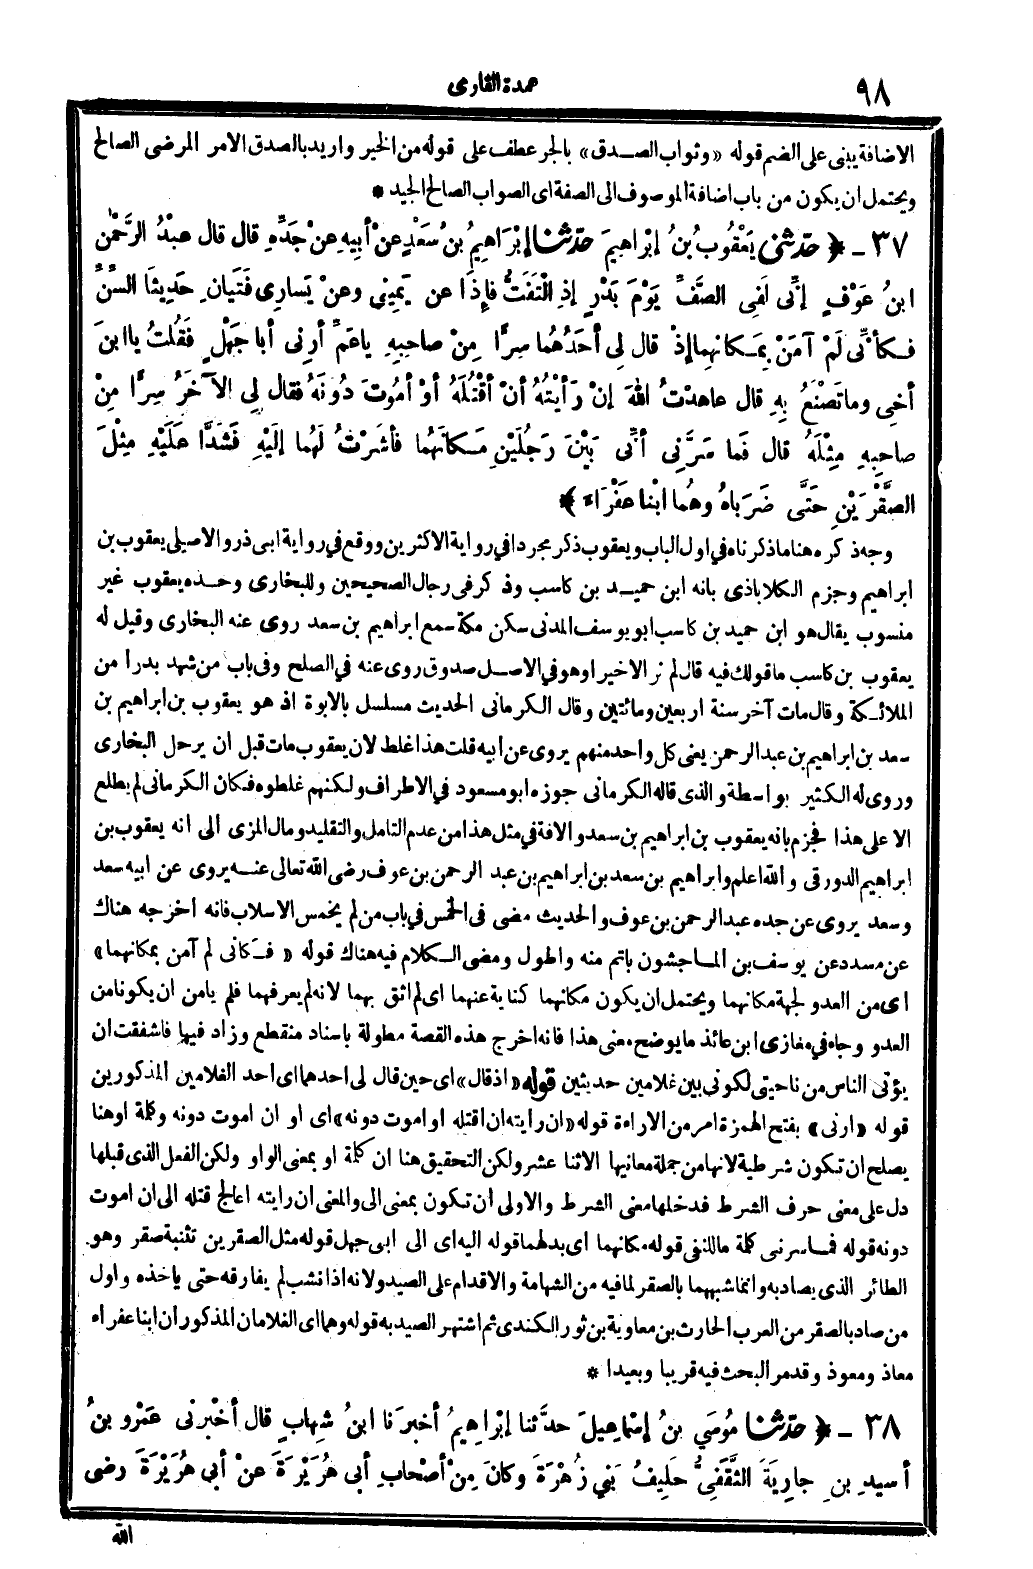 ٩٨
عمدة القارى
الاضافة يبنى على الضم قوله «وثواب الصدق» بالجر عطف على قوله من الخير واريد بالصدق الامر المرضى الصالح
ويحتمل ان يكون من باب اضافة الموصوف الى الصفة اى الصواب الصالح الجيد *
٣٧ - ﴿ حدّثنى يَعْقُوبُ بنُ إبْراهِيمَ حدّثنا إبْرَاهِيمُ بنُ سَعْدٍ عنْ أبِيهِ عنْ جَدِّهِ قال قال عبْدُ الرَّحْمٰنِ
ابنُ عَوْفٍ إنِّى لَفِى الصَّفِّ يَوْمَ بَدْرٍ إذِ الْتَفَتُّ فإذَا عن يَمِينِي وعنْ يَسارِى فَتَيانِ حَدِيثَا السِّنِّ
فكأنِّى لَمْ آمَنْ بِمَكانِهِما إذْ قال لِى أحَدُهُما سِرًّا مِنْ صاحِبِهِ ياعَمِّ أرِنِى أبا جَهْلٍ فَقُلتُ يا ابنَ
أخِى وما تَصْنَعُ بِهِ قال عاهدْتُ اللهَ إنْ رَأيْتُهُ أنْ أقْتُلَهُ أوْ أمُوتَ دُونَهُ فقال لِى الآخَرُ سِرًّا مِنْ
صاحِبِهِ مِثْلَهُ قال فَما سَرَّنِى أنِّى بَيْنَ رَجُلَيْنِ مَكانَهُما فأشَرْتُ لَهُما إلَيْهِ فَشَدَّا عَلَيْهِ مِثْلَ
الصَّقْرَيْنِ حَتَّى ضَرَباهُ وهُما ابْنا عَفْرَاءَ ﴾
وجه ذكره هنا ما ذكرناه في اول الباب ويعقوب ذكر مجردا في رواية الاكثرين ووقع في رواية ابى ذر والاصيلى يعقوب بن
ابراهيم وجزم الكلاباذى بانه ابن حميد بن كاسب وذكر فى رجال الصحيحين وللبخارى وحده يعقوب غير
منسوب يقال هو ابن حميد بن كاسب ابو يوسف المدنى سكن مكة سمع ابراهيم بن سعد روى عنه البخارى وقيل له
يعقوب بن كاسب ما قولك فيه قال لم نر الا خيرا وهو في الاصل صدوق روى عنه في الصلح وفى باب من شهد بدرا من
الملائكة وقال مات آخر سنة اربعين ومائتين وقال الكرمانى الحديث مسلسل بالابوة اذ هو يعقوب بن ابراهيم بن
سعد بن ابراهيم بن عبد الرحمن يعنى كل واحد منهم يروى عن ابيه قلت هذا غلط لان يعقوب مات قبل ان يرحل البخارى
وروى له الكثير بواسطة والذى قاله الكرمانى جوزه ابو مسعود في الاطراف ولكنهم غلطوه فكان الكرمانى لم يطلع
الا على هذا فجزم بانه يعقوب بن ابراهيم بن سعد والافة في مثل هذا من عدم التامل والتقليد ومال المزى الى انه يعقوب بن
ابراهيم الدورقى والله اعلم وابراهيم بن سعد بن ابراهيم بن عبد الرحمن بن عوف رضى الله تعالى عنه يروى عن ابيه سعد
وسعد يروى عن جده عبد الرحمن بن عوف والحديث مضى فى الخمس في باب من لم يخمس الاسلاب فانه اخرجه هناك
عن مسدد عن يوسف بن الماجشون باتم منه واطول ومضى الكلام فيه هناك قوله «فكانى لم آمن بمكانهما»
اى من العدو لجهة مكانهما ويحتمل ان يكون مكانهما كناية عنهما اى لم اثق بهما لانه لم يعرفهما فلم يامن ان يكونا من
العدو وجاء في مغازى ابن عائذ ما يوضح معنى هذا فانه اخرج هذه القصة مطولة باسناد منقطع وزاد فيها فاشفقت ان
يؤتى الناس من ناحيتى لكونى بين غلامين حديثين قوله «اذ قال» اى حين قال لى احدهما اى احد الغلامين المذكورين
قوله «ارنى» بفتح الهمزة امر من الاراءة قوله «ان رايته ان اقتله او اموت دونه» اى او ان اموت دونه وكلمة او هنا
يصلح ان تكون شرطية لانها من جملة معانيها الاثنا عشر ولكن التحقيق هنا ان كلمة او بمعنى الواو ولكن الفعل الذى قبلها
دل على معنى حرف الشرط فدخلها معنى الشرط والاولى ان تكون بمعنى الى والمعنى ان رايته اعالج قتله الى ان اموت
دونه قوله فما سرنى كلمة ما للنفى قوله مكانهما اى بدلهما قوله اليه اى الى ابى جهل قوله مثل الصقرين تثنية صقر وهو
الطائر الذى يصاد به وانما شبههما بالصقر لما فيه من الشهامة والاقدام على الصيد ولانه اذا نشب لم يفارقه حتى ياخذه واول
من صاد بالصقر من العرب الحارث بن معاوية بن ثور الكندى ثم اشتهر الصيد به قوله وهما اى الغلامان المذكوران ابنا عفراء
معاذ ومعوذ وقد مر البحث فيه قريبا وبعيدا *
٣٨ - ﴿ حدّثنا مُوسَي بنُ إسْماعِيلَ حدَّثنا إبْراهِيمُ أخبرَنا ابنُ شِهابٍ قال أخْبرنى عَمْرُو بنُ
أسيدِ بنِ جارِيَةَ الثَّقَفِىُّ حَلِيفُ بَنِي زُهْرَةَ وكانَ مِنْ أصْحابِ أبى هُرَيْرَةَ عنْ أبي هُرَيْرَةَ رضى
الله